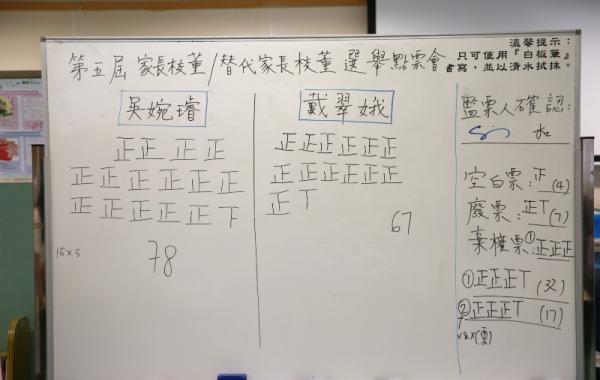 溫馨提示：
只可使用『白板筆』
書寫，並以清水拭抹。
第五屆 家長校董/替代家長校董 選舉點票會
吳婉璿
正正 正 正
正 正 正 正 正 正
正 正 正 正 正 下
15×5
78
戴翠娥
正正正正正正
正正正正正正
正 丅
67
監票人確認：
空白票：正(4)
廢票：正丅(7)
棄權票：①正正正
①正正正丅(32)
②正正正丅(17)